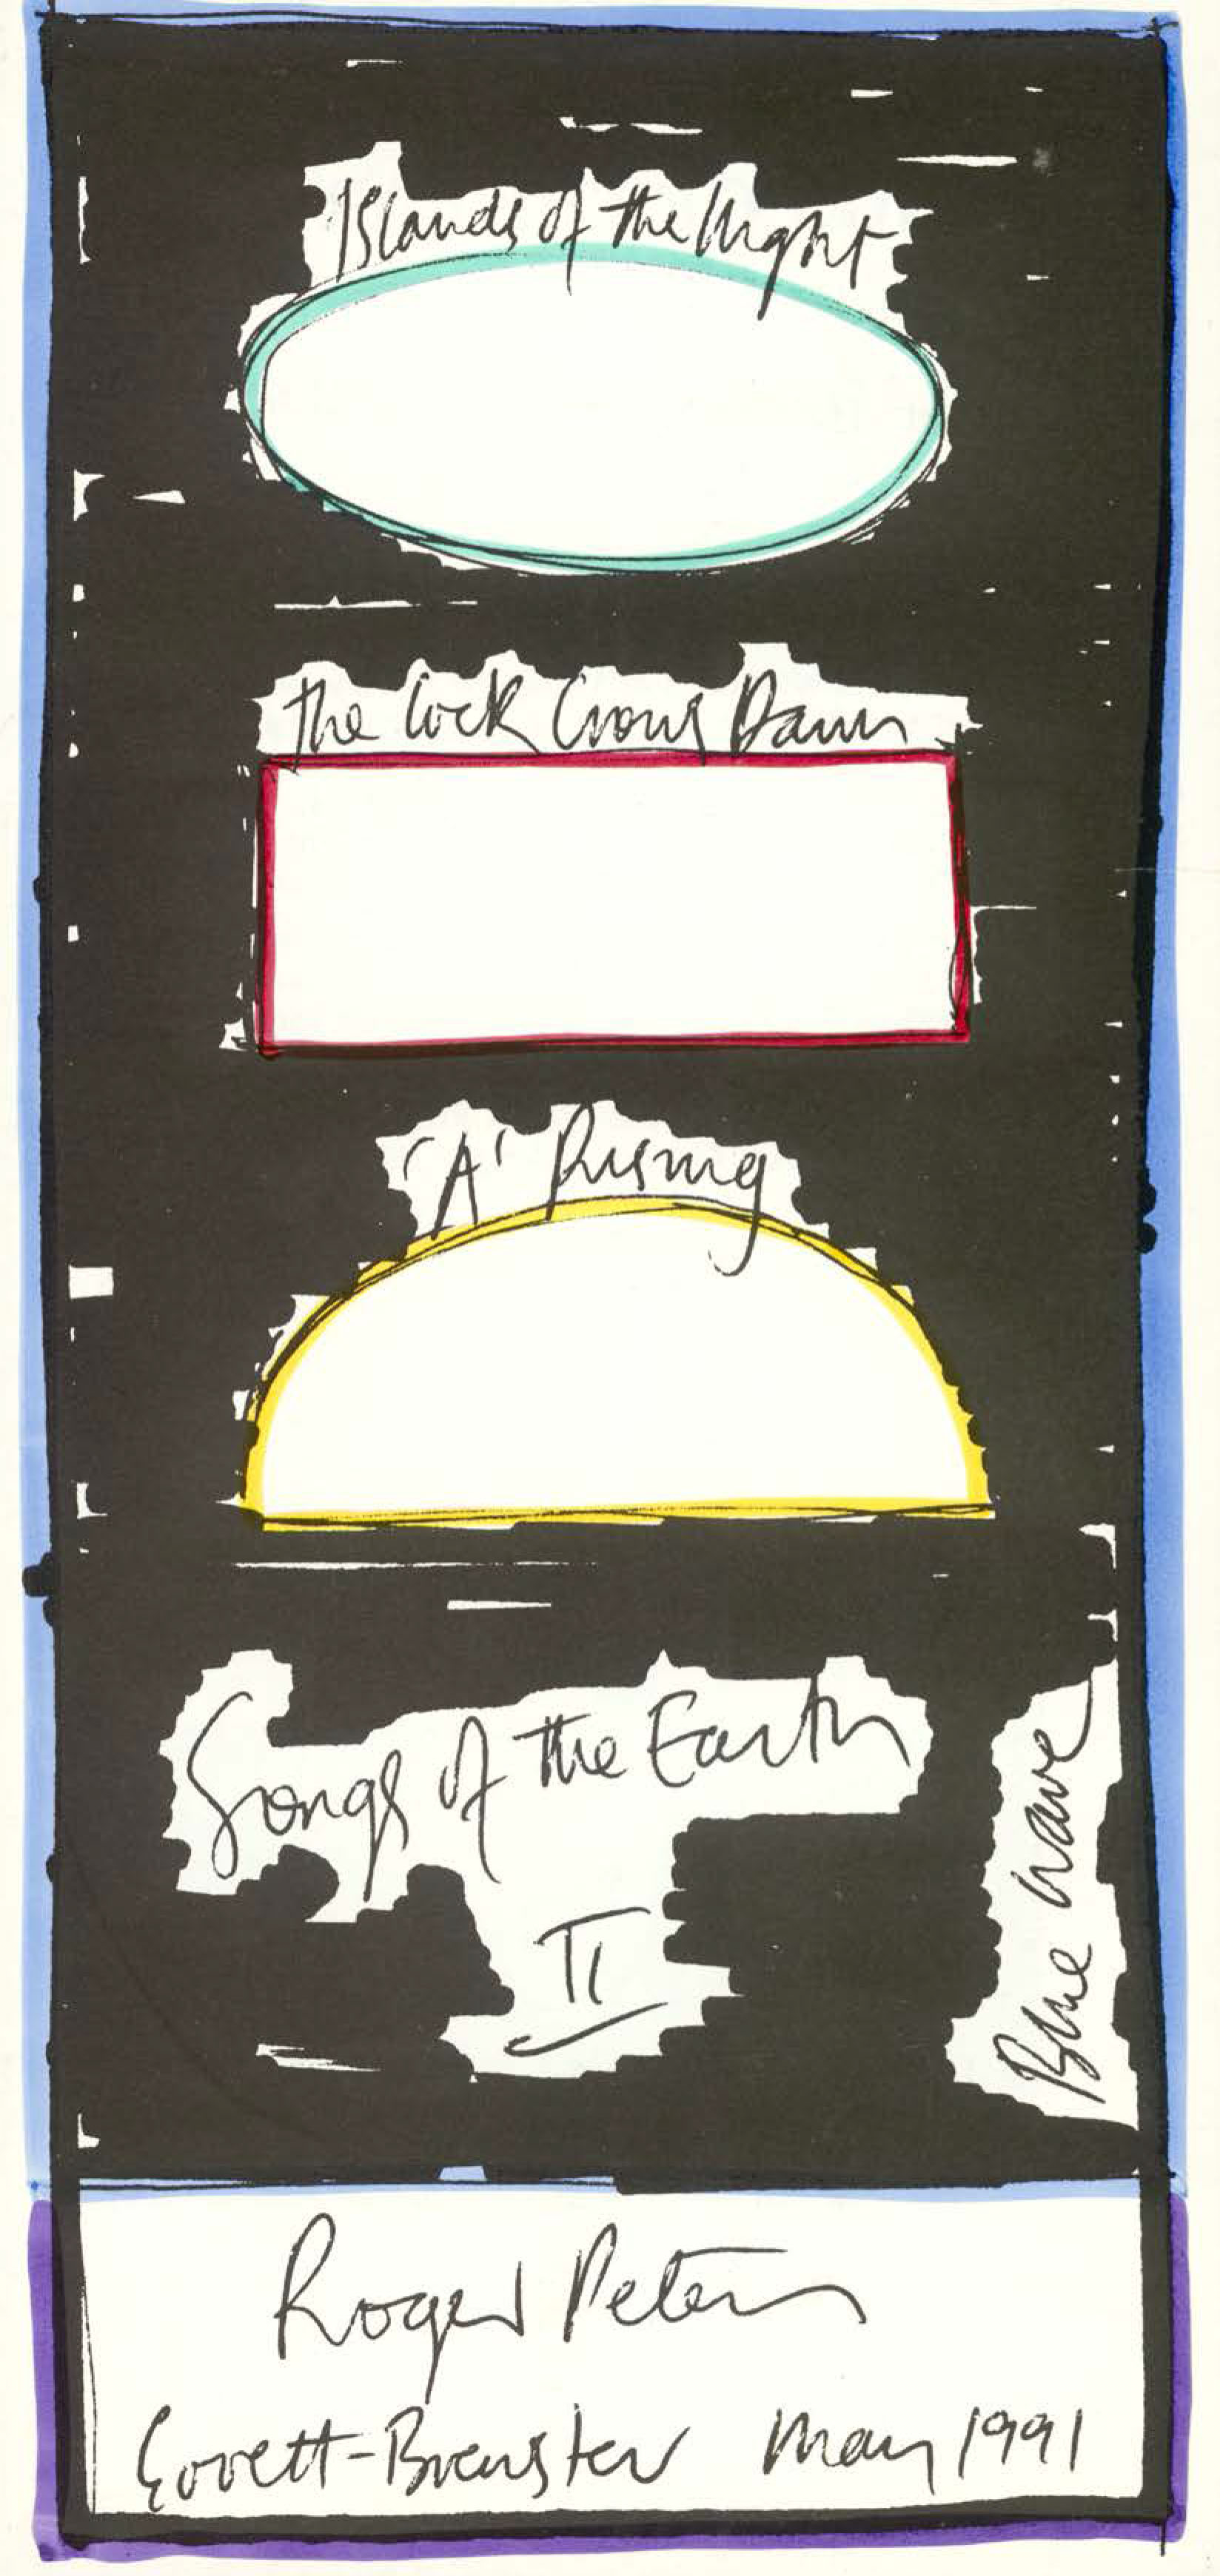 Islands of the Night
The Cock Crows Dawn
'A' Rising
Songs of the Earth
II
Blue Wave
Roger Peters
Govett-Brewster May 1991